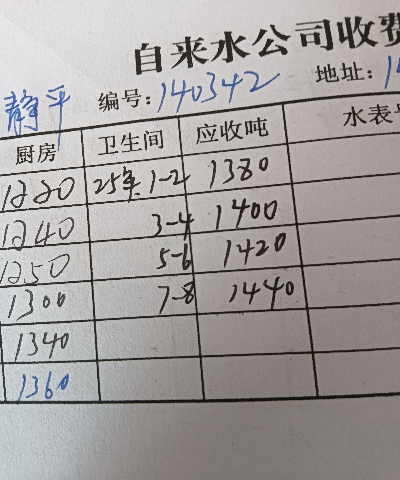 自来水公司收费
静平 编号:140342 地址:1
厨房 卫生间 应收吨 水表
1220 25年 1-2 1380
1240 3-4 1400
1250 5-6 1420
1300 7-8 1440
1340
1360